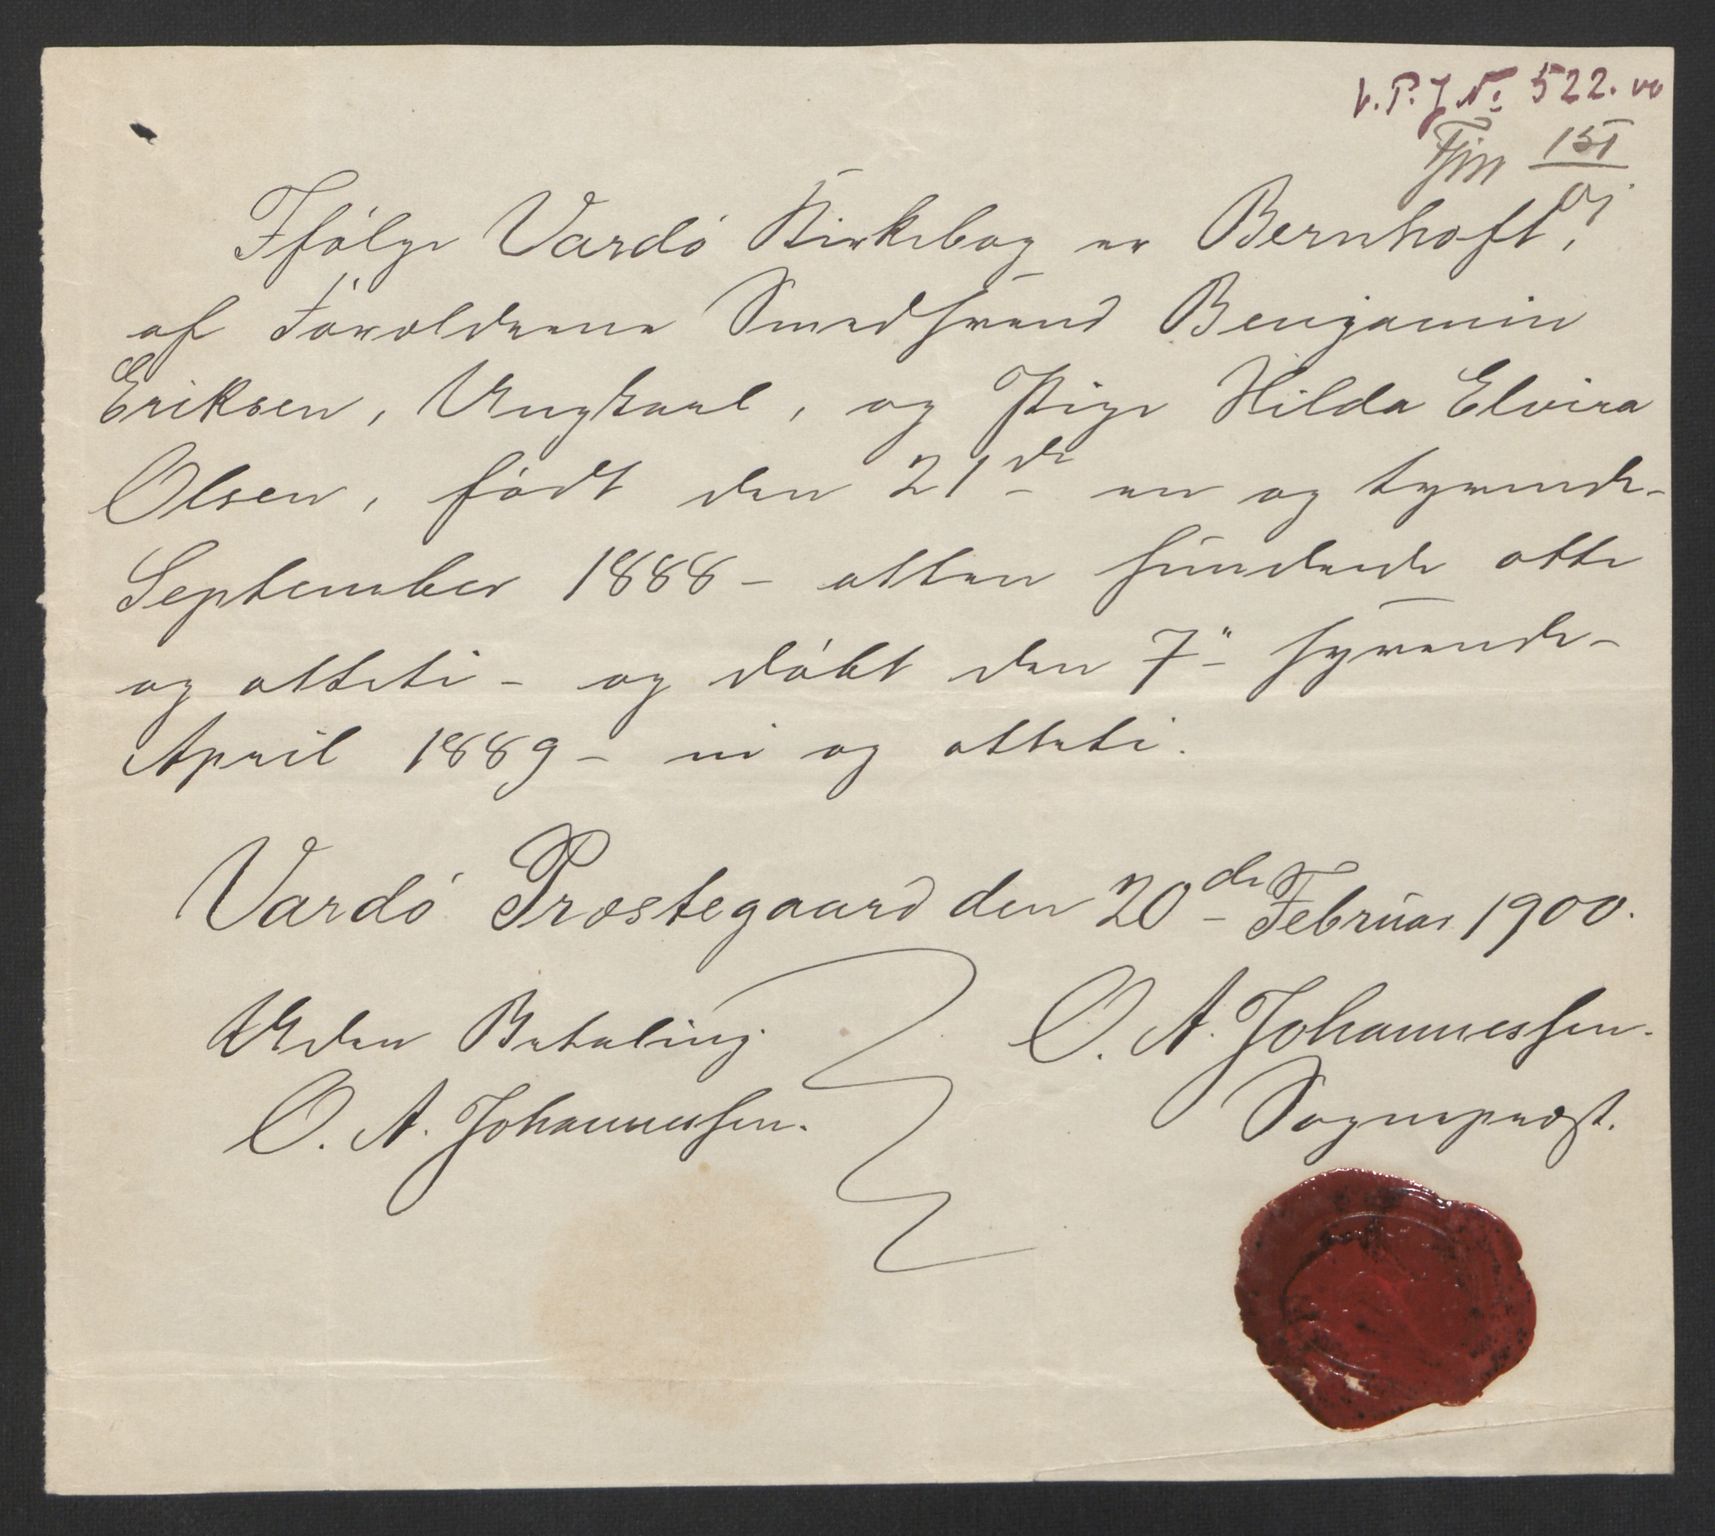 V. P. J. No. 522. 00
151
Ifølge Vardø Kirkebog er Bernhoft,
af Forældrene Smedsvend Benjamin
Eriksen, Ungkarl, og Pige Hilda Elvira
Olsen, født den 21de en og tyvende
September 1888 – atten hundrede otte
og otteti – og døbt den 7" syvende –
April 1889 – ni og otteti.
Vardø Præstegaard den 20de Februar 1900.
Uden Betaling. O. A. Johannessen.
O. A. Johannessen. Sognepræst.